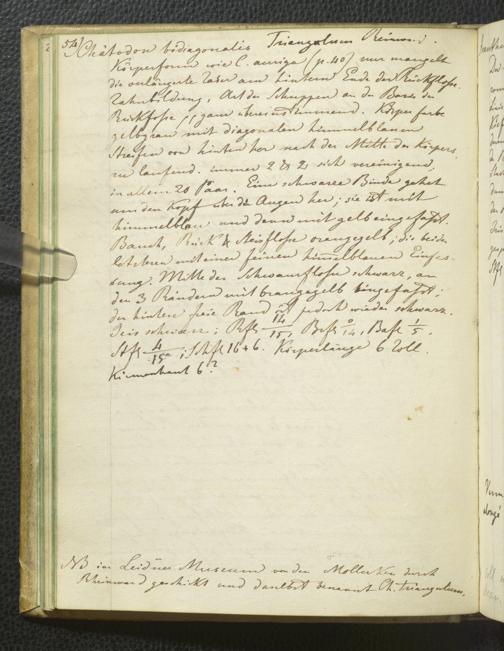 54) Chätodon bidiagonalis Triangulum Reinw.
Körperform wie C. auriga (p. 40) nur mangelt
die verlängerte Faser am hintern Ende der Rückflosse.
Zahnbildung, Art der Schuppen an der Basis der
Rückflosse ganz übereinstimmend. Körperfarbe
gelbgrau mit diagonalen himmelblauen
Streifen von hinten her nach der Mitte des Körpers
zu laufend, immer 2 & 2 sich vereinigend,
in allem 20 Paar. Eine schwarze Binde gehet
um den Kopf über die Augen her; sie ist mit
himmelblau und dann mit gelb eingefasst.
Bauch, Rück & Steissflosse orangegelb; die beiden
letzteren mit einer feinen himmelblauen Einfas-
sung. Mitte der Schwanzflosse schwarz, an
den 3 Rändern mit orangegelb eingefasst;
der hintere freie Rand ist jedoch wieder schwarz.
Iris schwarz; Rfl. 14/15, Brfl. 0/14, Bafl. 1/5.
Stfl. 4/15; Schfl. 16+6. Körperlänge 6 Zoll.
Kiemenhaut 6?
NB im Leidner Museum von den Molluken durch
Reinward geschikt und daselbst benannt Ch. Triangulum.